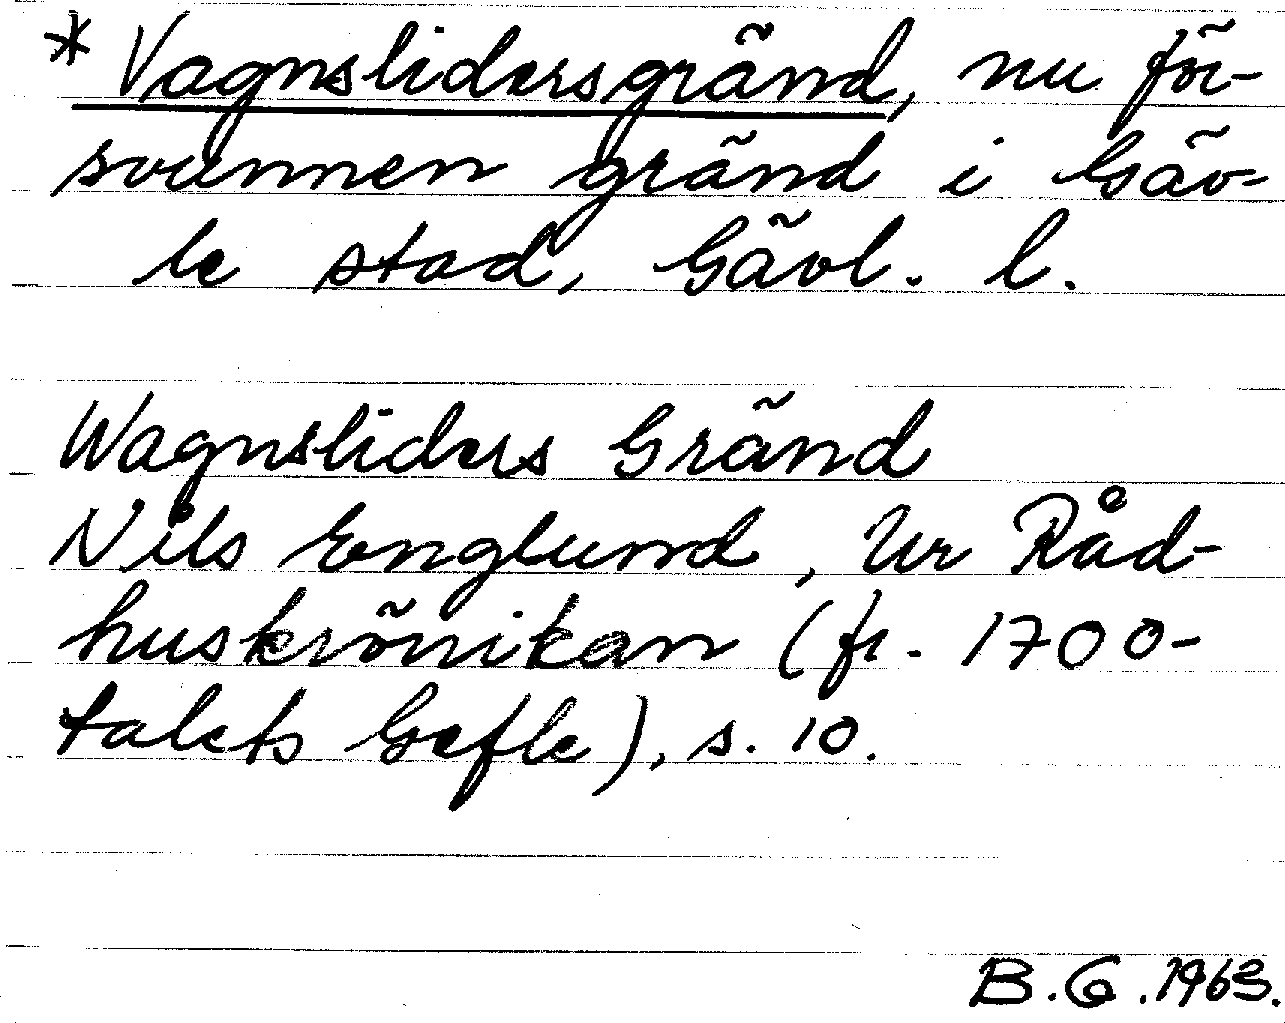 * Vagnslidersgränd, nu för-
svunnen gränd i Gäv-
le stad, Gävl. l.
Wagnsliders Gränd
Nils Englund, Ur Råd-
huskrönikan (fr. 1700-
talets Gefle), s. 10.
B.G.1963.